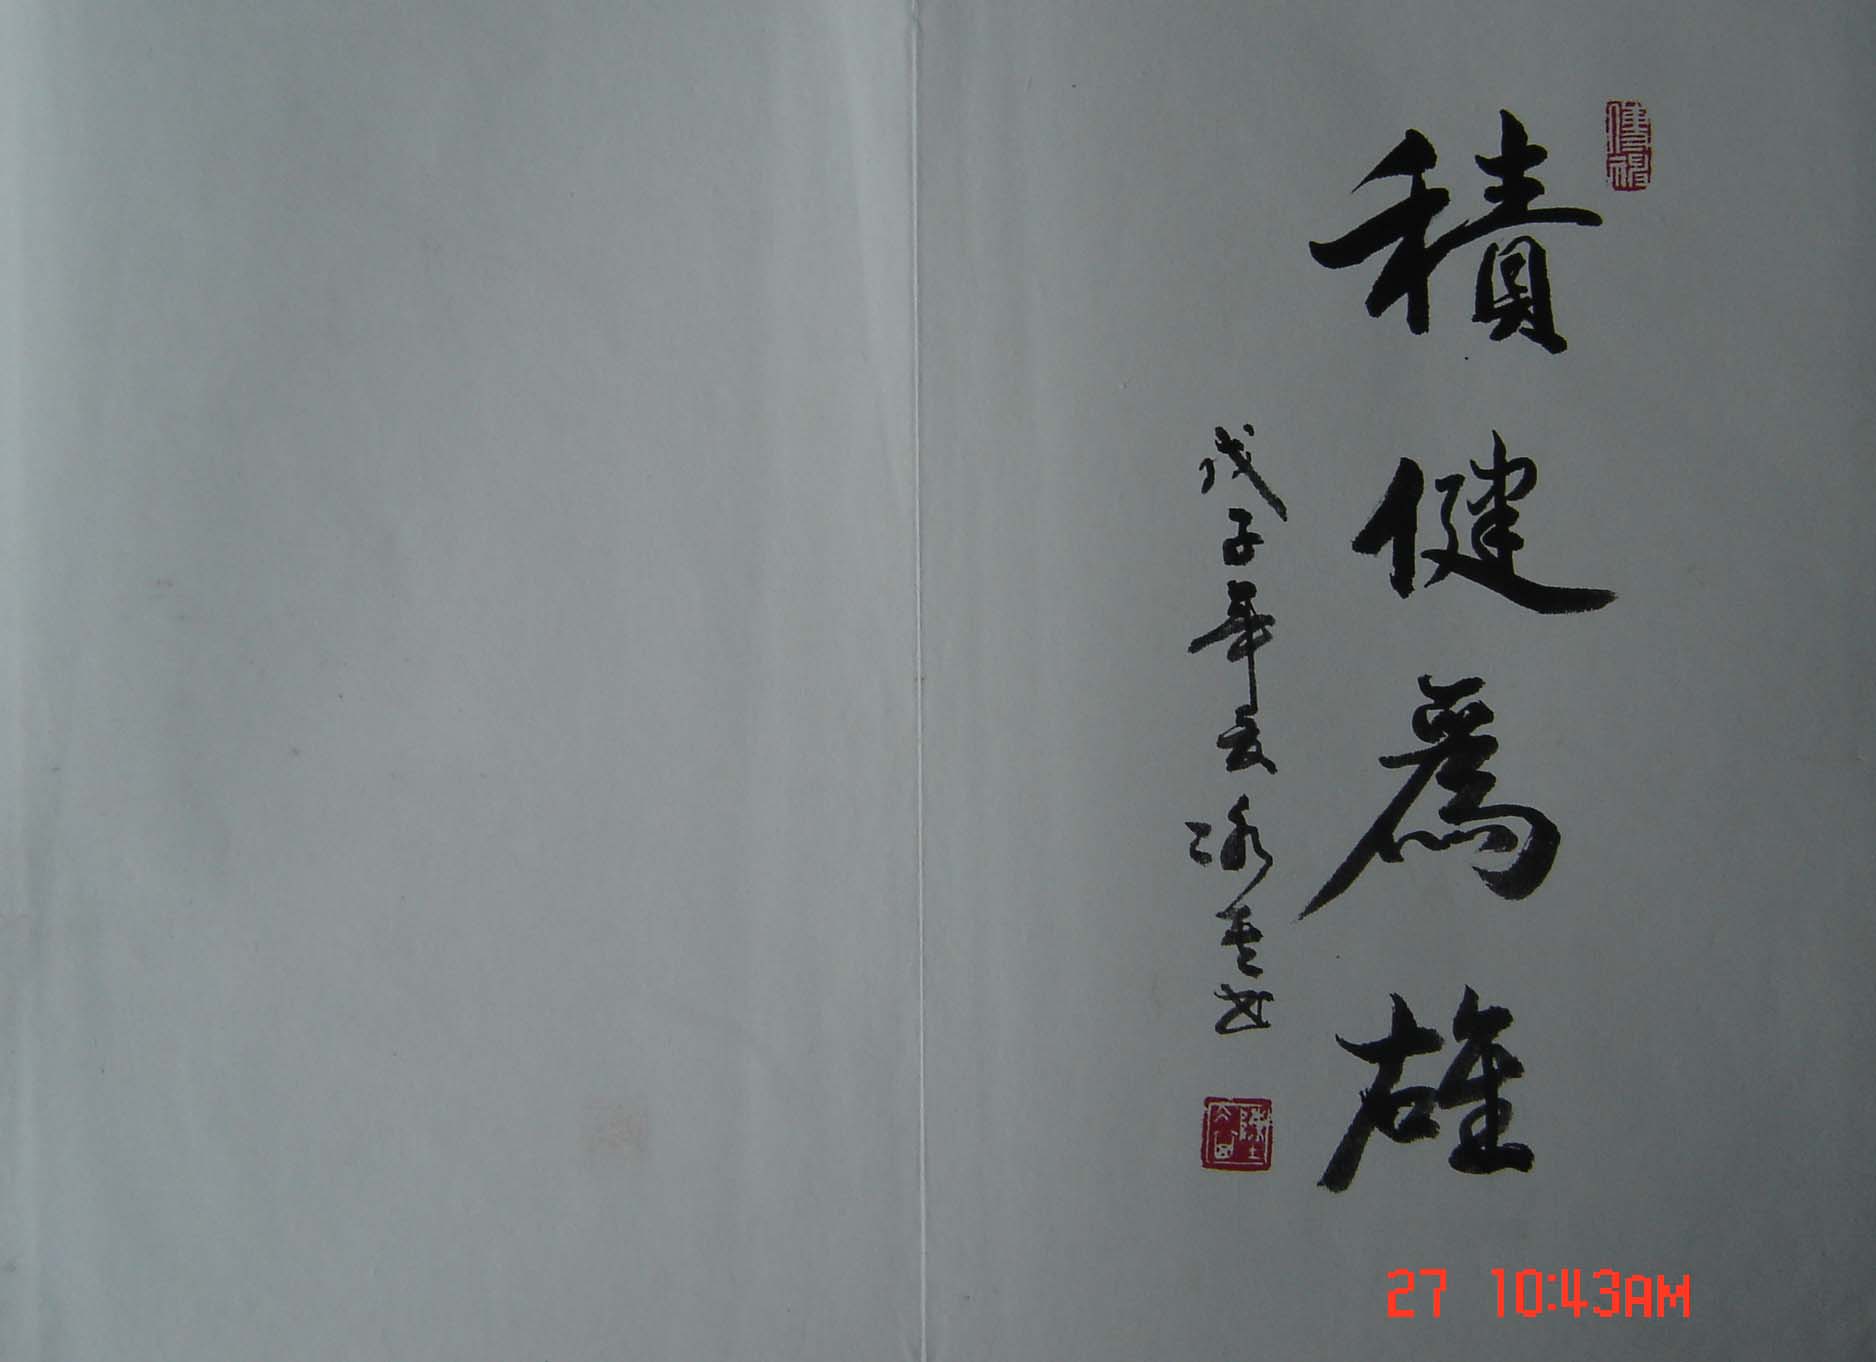 積健為雄
戊子年夏 冰 書
27 10:43AM